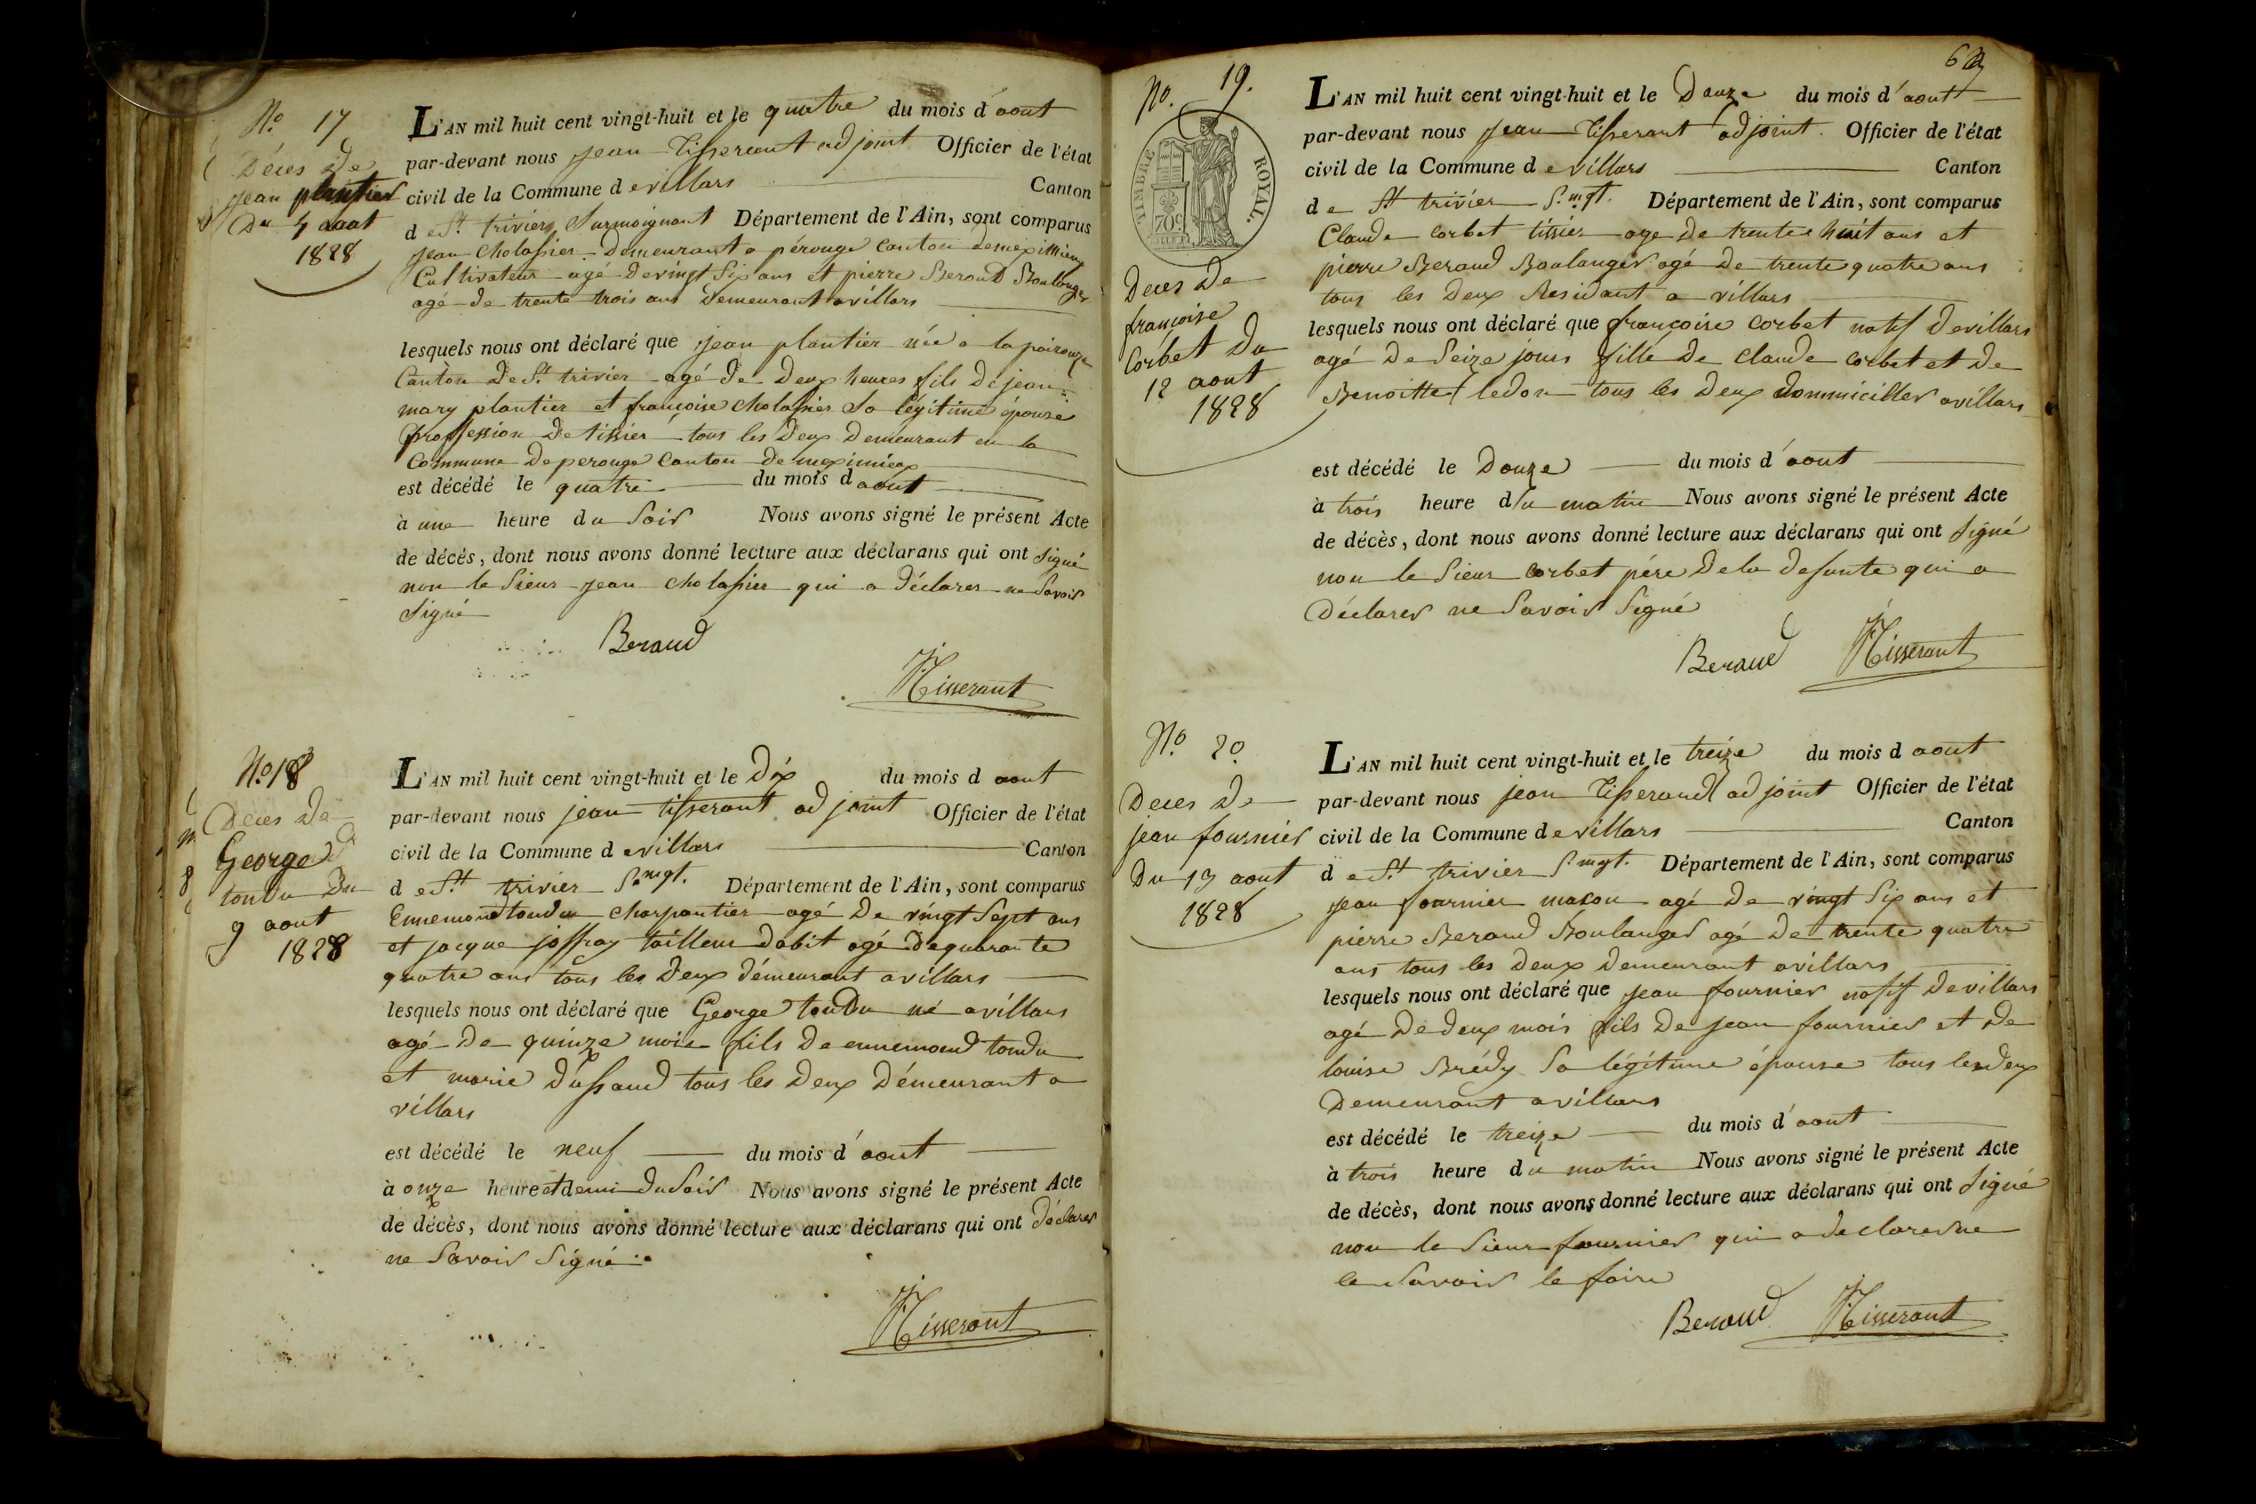 No. 17
Déces De
Jean plantier
Du 4 aout
1828
L'AN mil huit cent vingt-huit et le quatre du mois d'aout
par-devant nous Jean Tisserant adjoint Officier de l'état
civil de la Commune de villars Canton
de St. triviers Surmoignant Département de l'Ain, sont comparus
Jean Cholassier Demeurant a pérouge Canton de meximieux
Cultivateur agé de vingt Six ans et pierre Beraud Boulanger
agé de trente trois ans Demeurant a villars
lesquels nous ont déclaré que Jean plantier née a la
Canton De St. trivier agé de Deux heures fils De jean
mary plantier et françoise cholassier Sa légitime épouse
proffession De tissier tous les Deux Demeurant en la
Commune De perouge Canton De meximieux
est décédé le quatre du mois d aout
à une heure du Soir Nous avons signé le présent Acte
de décès, dont nous avons donné lecture aux déclarans qui ont Signé
non le Sieur Jean cholassier qui a déclarer ne Savoir
Signé
Beraud
Tisserant
No. 18
Déces De
George
tondu Du
9 aout
1828
L'AN mil huit cent vingt-huit et le Dix du mois d aout
par-devant nous jean tisserant adjoint Officier de l'état
civil de la Commune d evillars Canton
de St. trivier S. mgt. Département de l'Ain, sont comparus
Ennemond tondu charpantier agé De vingt Sept ans
et jacque joffray tailleur Dabit agé De quarante
quatre ans tous les Deux démeurant a villars
lesquels nous ont déclaré que George tondu né a villars
agé De quinze mois fils De ennemond tondu
et marie Dussaud tous les Deux Démeurant a
villars
est décédé le neuf du mois d'aout
à onze heure et demi du Soir Nous avons signé le présent Acte
de décès, dont nous avons donné lecture aux déclarans qui ont Déclarer
ne Savoir Signé
Tisserant
No. 19.
TIMBRE ROYAL.
70c
Déces De
françoise
Corbet Du
12 aout
1828
L'AN mil huit cent vingt-huit et le Douze du mois d'aout
par-devant nous Jean Tisserant adjoint. Officier de l'état
civil de la Commune d evillars Canton
de St trivier S. mgt. Département de l'Ain, sont comparus
Claude Corbet tissier age de trente huit ans et
pierre Beraud Boulanger agé De trente quatre ans
tous les Deux Residant a villars
lesquels nous ont déclaré que françoise Corbet natif De villars
agé De Seize jours fille De Claude Corbet et De
Benoitte ledon tous les Deux dommiciller a villars
est décédé le Douze du mois d'aout
à trois heure du matin Nous avons signé le présent Acte
de décès, dont nous avons donné lecture aux déclarans qui ont Signé
non le Sieur corbet pére De la defunte qui a
Déclarer ne Savoir Signé
Beraud Tisserant
No. 20
Déces De
jean fournier
Du 13 aout
1828
L'AN mil huit cent vingt-huit et le treize du mois d aout
par-devant nous jean Tisserand adjoint Officier de l'état
civil de la Commune d evillars Canton
de St trivier S. mgt. Département de l'Ain, sont comparus
Jean fournier mason agé De vingt Six ans et
pierre Beraud Boulanger agé De trente quatre
ans tous les Deux Demeurant a villars
lesquels nous ont déclaré que Jean fournier natif De villars
agé De Deux mois fils De Jean fournier et De
louise Brédy Sa légitime épouse tous les Deux
Demeurant a villars
est décédé le treize du mois d'aout
à trois heure du matin Nous avons signé le présent Acte
de décès, dont nous avons donné lecture aux déclarans qui ont Signé
non le Sieur fournier qui a declarer ne
le Savoir le faire
Beraud Tisserant